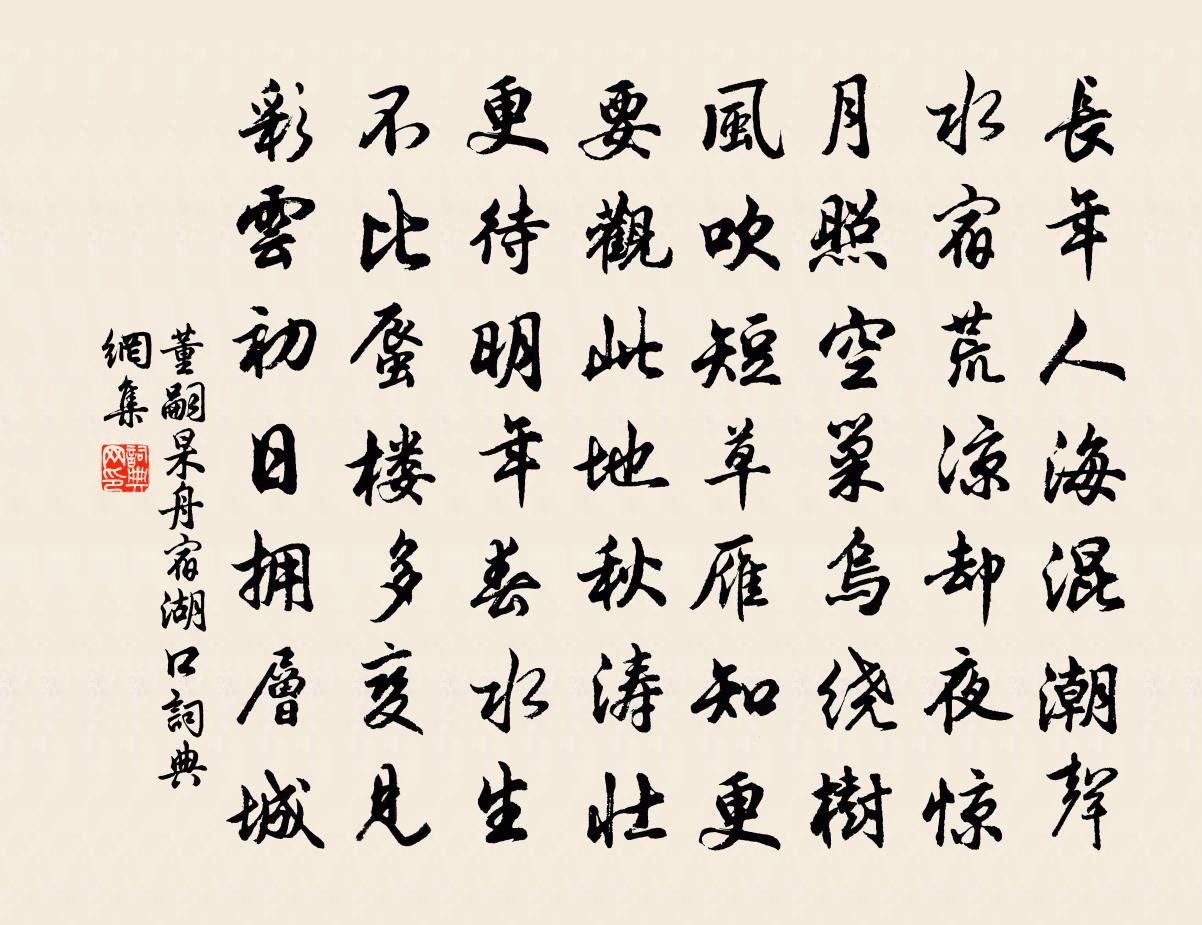 長年人海混潮聲
水宿荒涼却夜惊
月照空巢烏绕樹
風吹短草雁知更
要觀此地秋涛壮
更待明年春水生
不比蜃楼多变見
彩雲初日拥層城
董嗣杲舟宿湖口詞典
網集
詞典网印